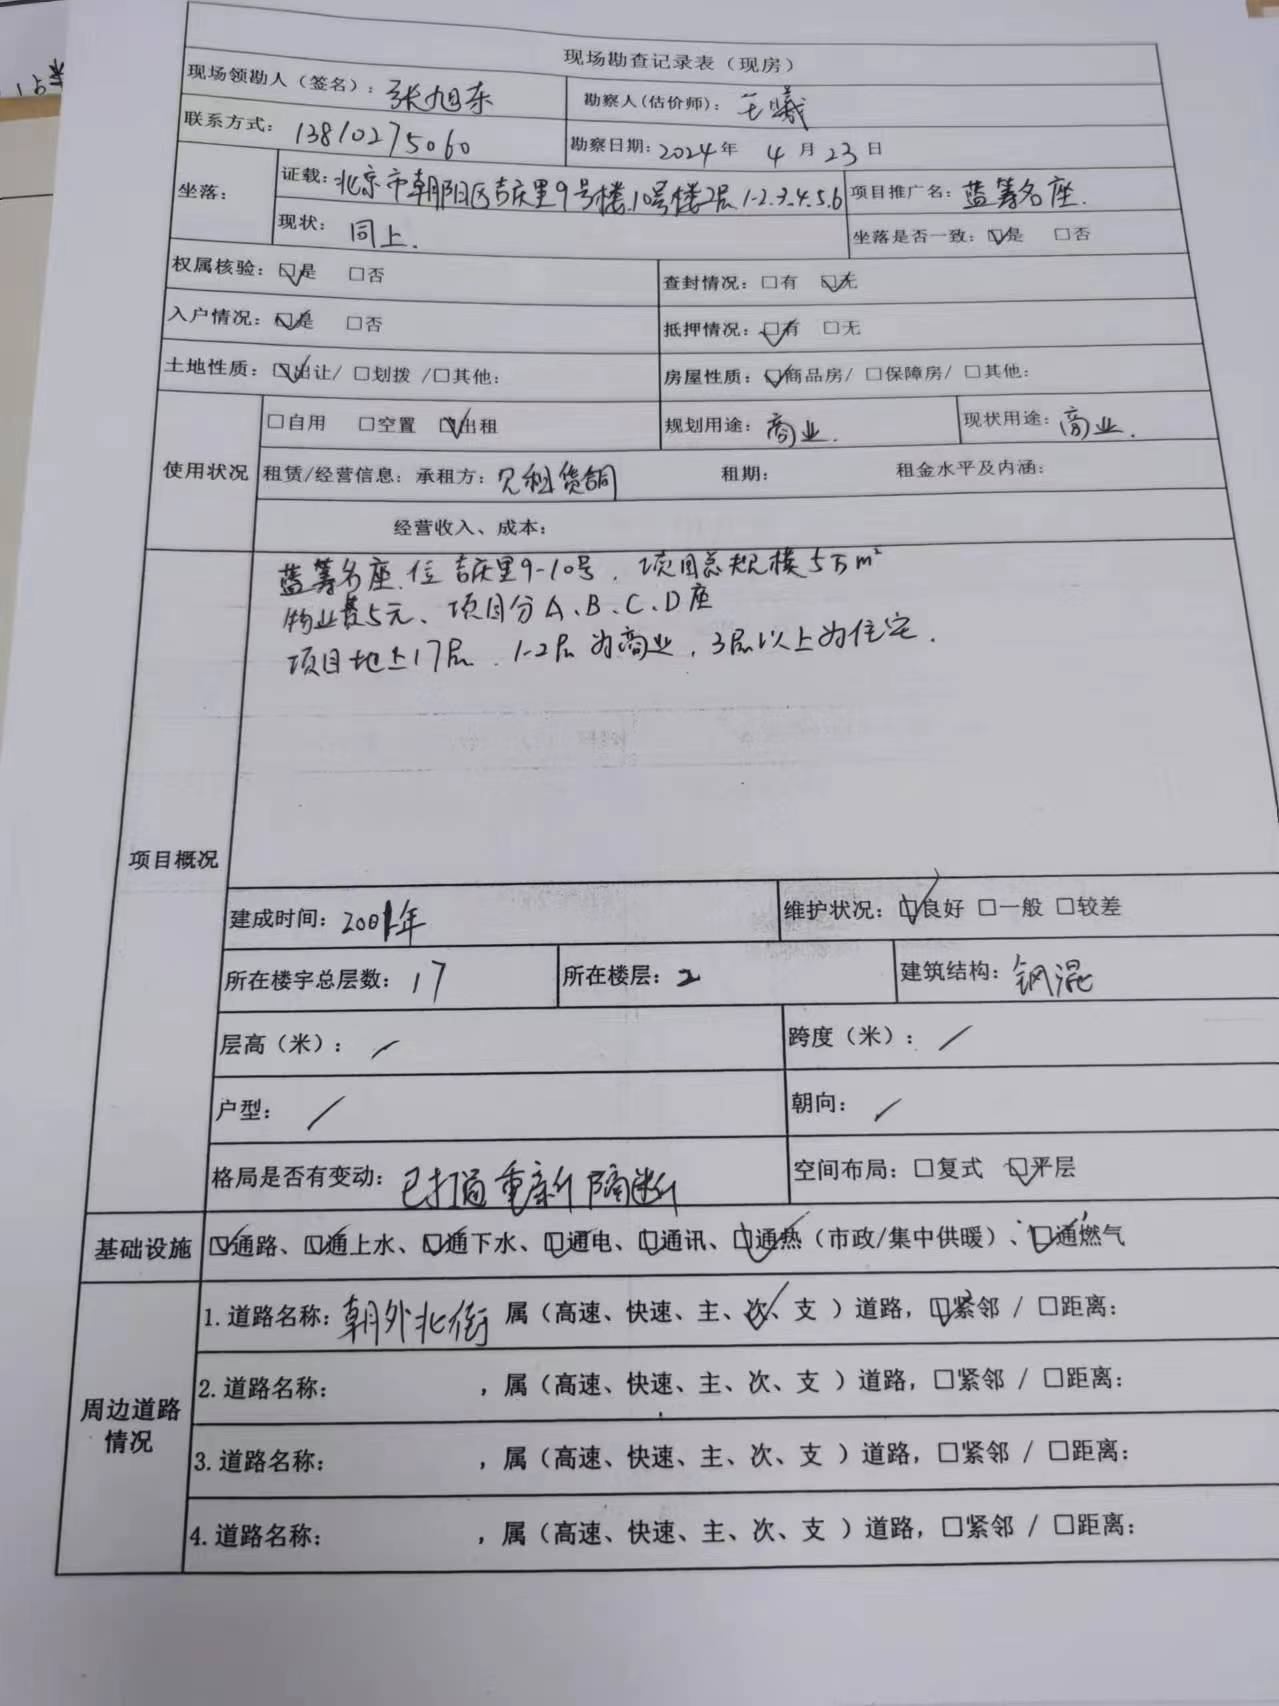 现场勘查记录表（现房）
现场领勘人（签名）：张旭东 勘察人(估价师)：王曦
联系方式：13810275060 勘察日期：2024年 4月23日
坐落： 证载：北京市朝阳区吉庆里9号楼、10号楼2层1-2.3.4.5.6 项目推广名：蓝筹名座.
现状：同上. 坐落是否一致：☑是 □否
权属核验：☑是 □否 查封情况：□有 ☑无
入户情况：☑是 □否 抵押情况：☑有 □无
土地性质：☑出让/ □划拨 /□其他： 房屋性质：☑商品房/ □保障房/ □其他：
使用状况 □自用 □空置 ☑出租 规划用途：商业. 现状用途：商业.
租赁/经营信息：承租方：见租赁合同 租期： 租金水平及内涵：
经营收入、成本：
项目概况
蓝筹名座.位吉庆里9-10号.项目总规模5万m²
物业费5元、项目分A、B、C、D座
项目地上17层.1-2层为商业，3层以上为住宅.
建成时间：2001年 维护状况：☑良好 □一般 □较差
所在楼宇总层数：17 所在楼层：2 建筑结构：钢混
层高（米）：/ 跨度（米）：/
户型：/ 朝向：/
格局是否有变动：已打通重新隔断 空间布局：□复式 ☑平层
基础设施 ☑通路、☑通上水、☑通下水、☑通电、☑通讯、☑通热（市政/集中供暖）、☑通燃气
周边道路情况
1.道路名称：朝外北街 属（高速、快速、主、次✓、支 ）道路，☑紧邻 / □距离：
2.道路名称： ，属（高速、快速、主、次、支 ）道路，□紧邻 / □距离：
3.道路名称： ，属（高速、快速、主、次、支 ）道路，□紧邻 / □距离：
4.道路名称： ，属（高速、快速、主、次、支 ）道路，□紧邻 / □距离：